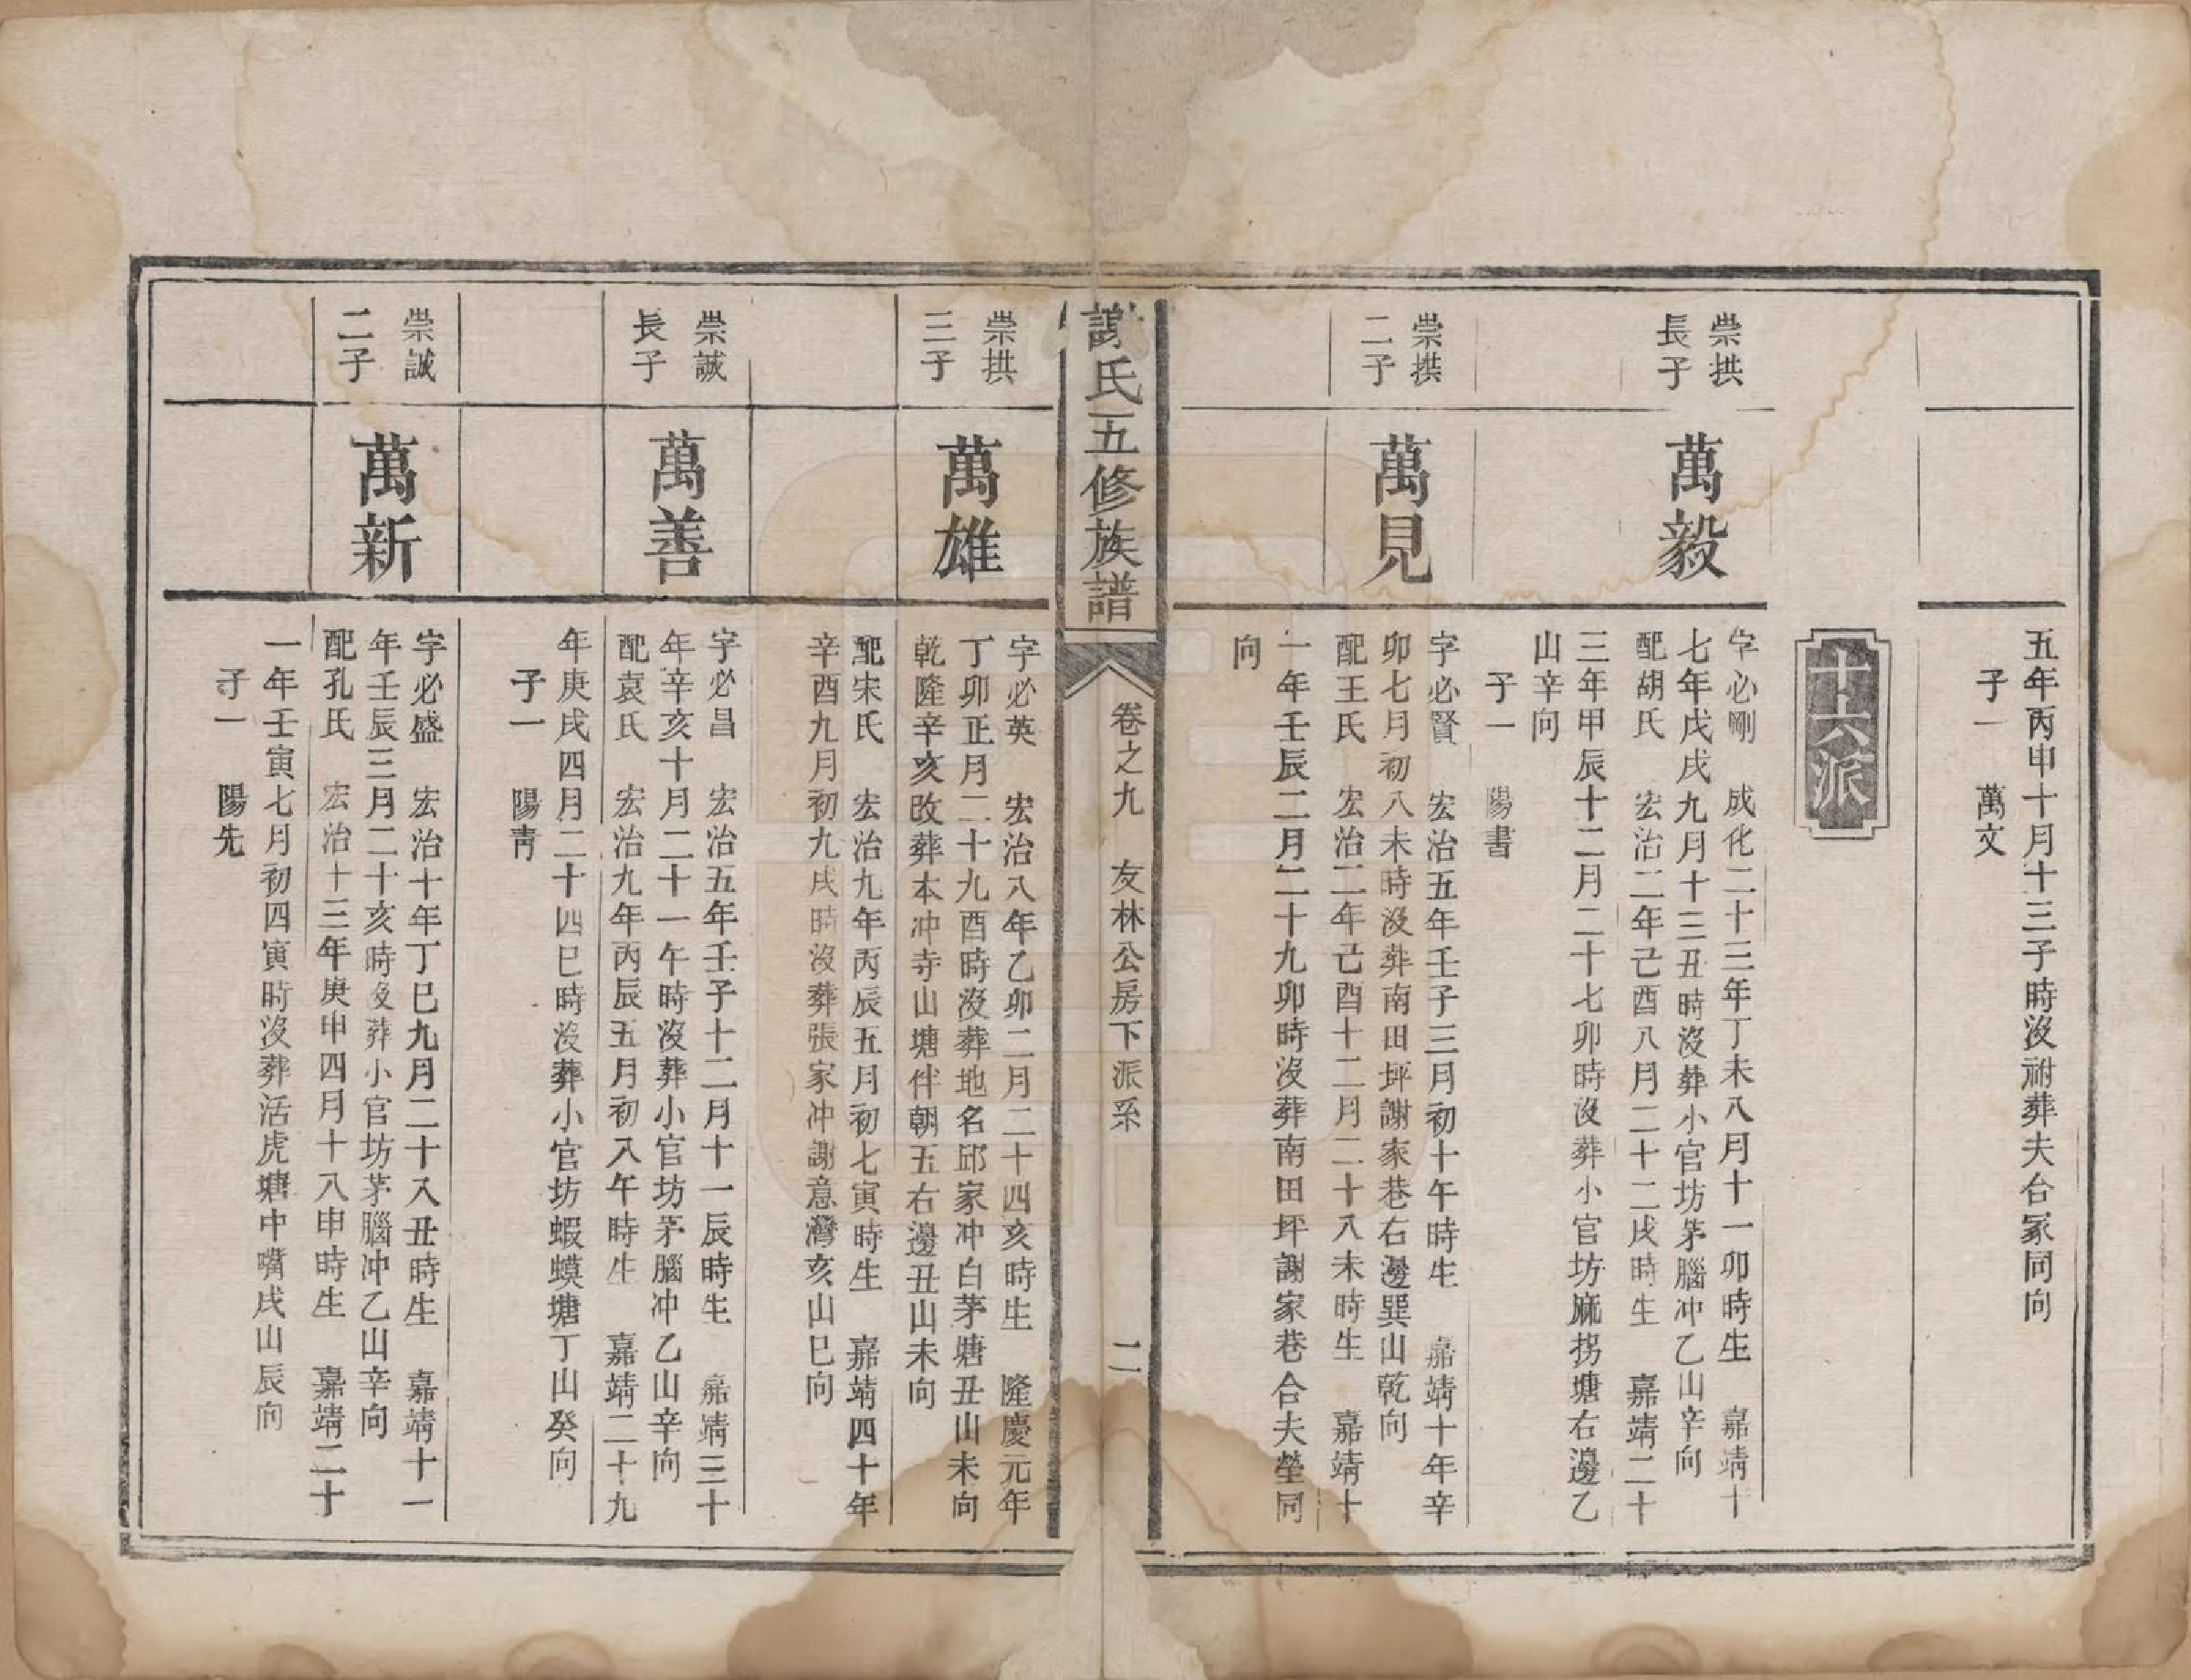 五年丙申十月十三子時沒祔葬夫合冢同向
子一　萬文
十六派
崇拱
長子
萬毅
字必剛　成化二十三年丁未八月十一卯時生　嘉靖十
七年戊戌九月十三丑時沒葬小官坊茅腦冲乙山辛向
配胡氏　宏治二年己酉八月二十二戌時生　嘉靖二十
三年甲辰十二月二十七卯時沒葬小官坊麻拐塘右邊乙
山辛向
子一　陽書
崇拱
二子
萬見
字必賢　宏治五年壬子三月初十午時生　嘉靖十年辛
卯七月初八未時沒葬南田坪謝家巷右邊巽山乾向
配王氏　宏治二年己酉十二月二十八未時生　嘉靖十
一年壬辰二月二十九卯時沒葬南田坪謝家巷合夫塋同
向
謝氏五修族譜
卷之九　友林公房下派系　二
崇拱
三子
萬雄
字必英　宏治八年乙卯二月二十四亥時生　隆慶元年
丁卯正月二十九酉時沒葬地名邱家冲白茅塘丑山未向
乾隆辛亥改葬本冲寺山塘伴朝五右邊丑山未向
配宋氏　宏治九年丙辰五月初七寅時生　嘉靖四十年
辛酉九月初九戌時沒葬張家冲謝意灣亥山巳向
崇誠
長子
萬善
字必昌　宏治五年壬子十二月十一辰時生　嘉靖三十
年辛亥十月二十一午時沒葬小官坊茅腦冲乙山辛向
配袁氏　宏治九年丙辰五月初八午時生　嘉靖二十九
年庚戌四月二十四巳時沒葬小官坊蝦蟆塘丁山癸向
子一　陽青
崇誠
二子
萬新
字必盛　宏治十年丁巳九月二十八丑時生　嘉靖十一
年壬辰三月二十亥時沒葬小官坊茅腦冲乙山辛向
配孔氏　宏治十三年庚申四月十八申時生　嘉靖二十
一年壬寅七月初四寅時沒葬活虎塘中嘴戌山辰向
子一　陽先